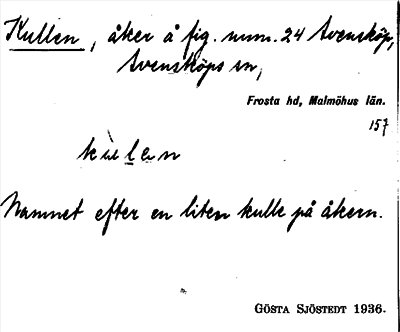 Kullen, åker å fig. num. 24 Svensköp,
Svensköps sn,
Frosta hd, Malmöhus län.
157
Namnet efter en liten kulle på åkern.
GÖSTA SJÖSTEDT 1936.